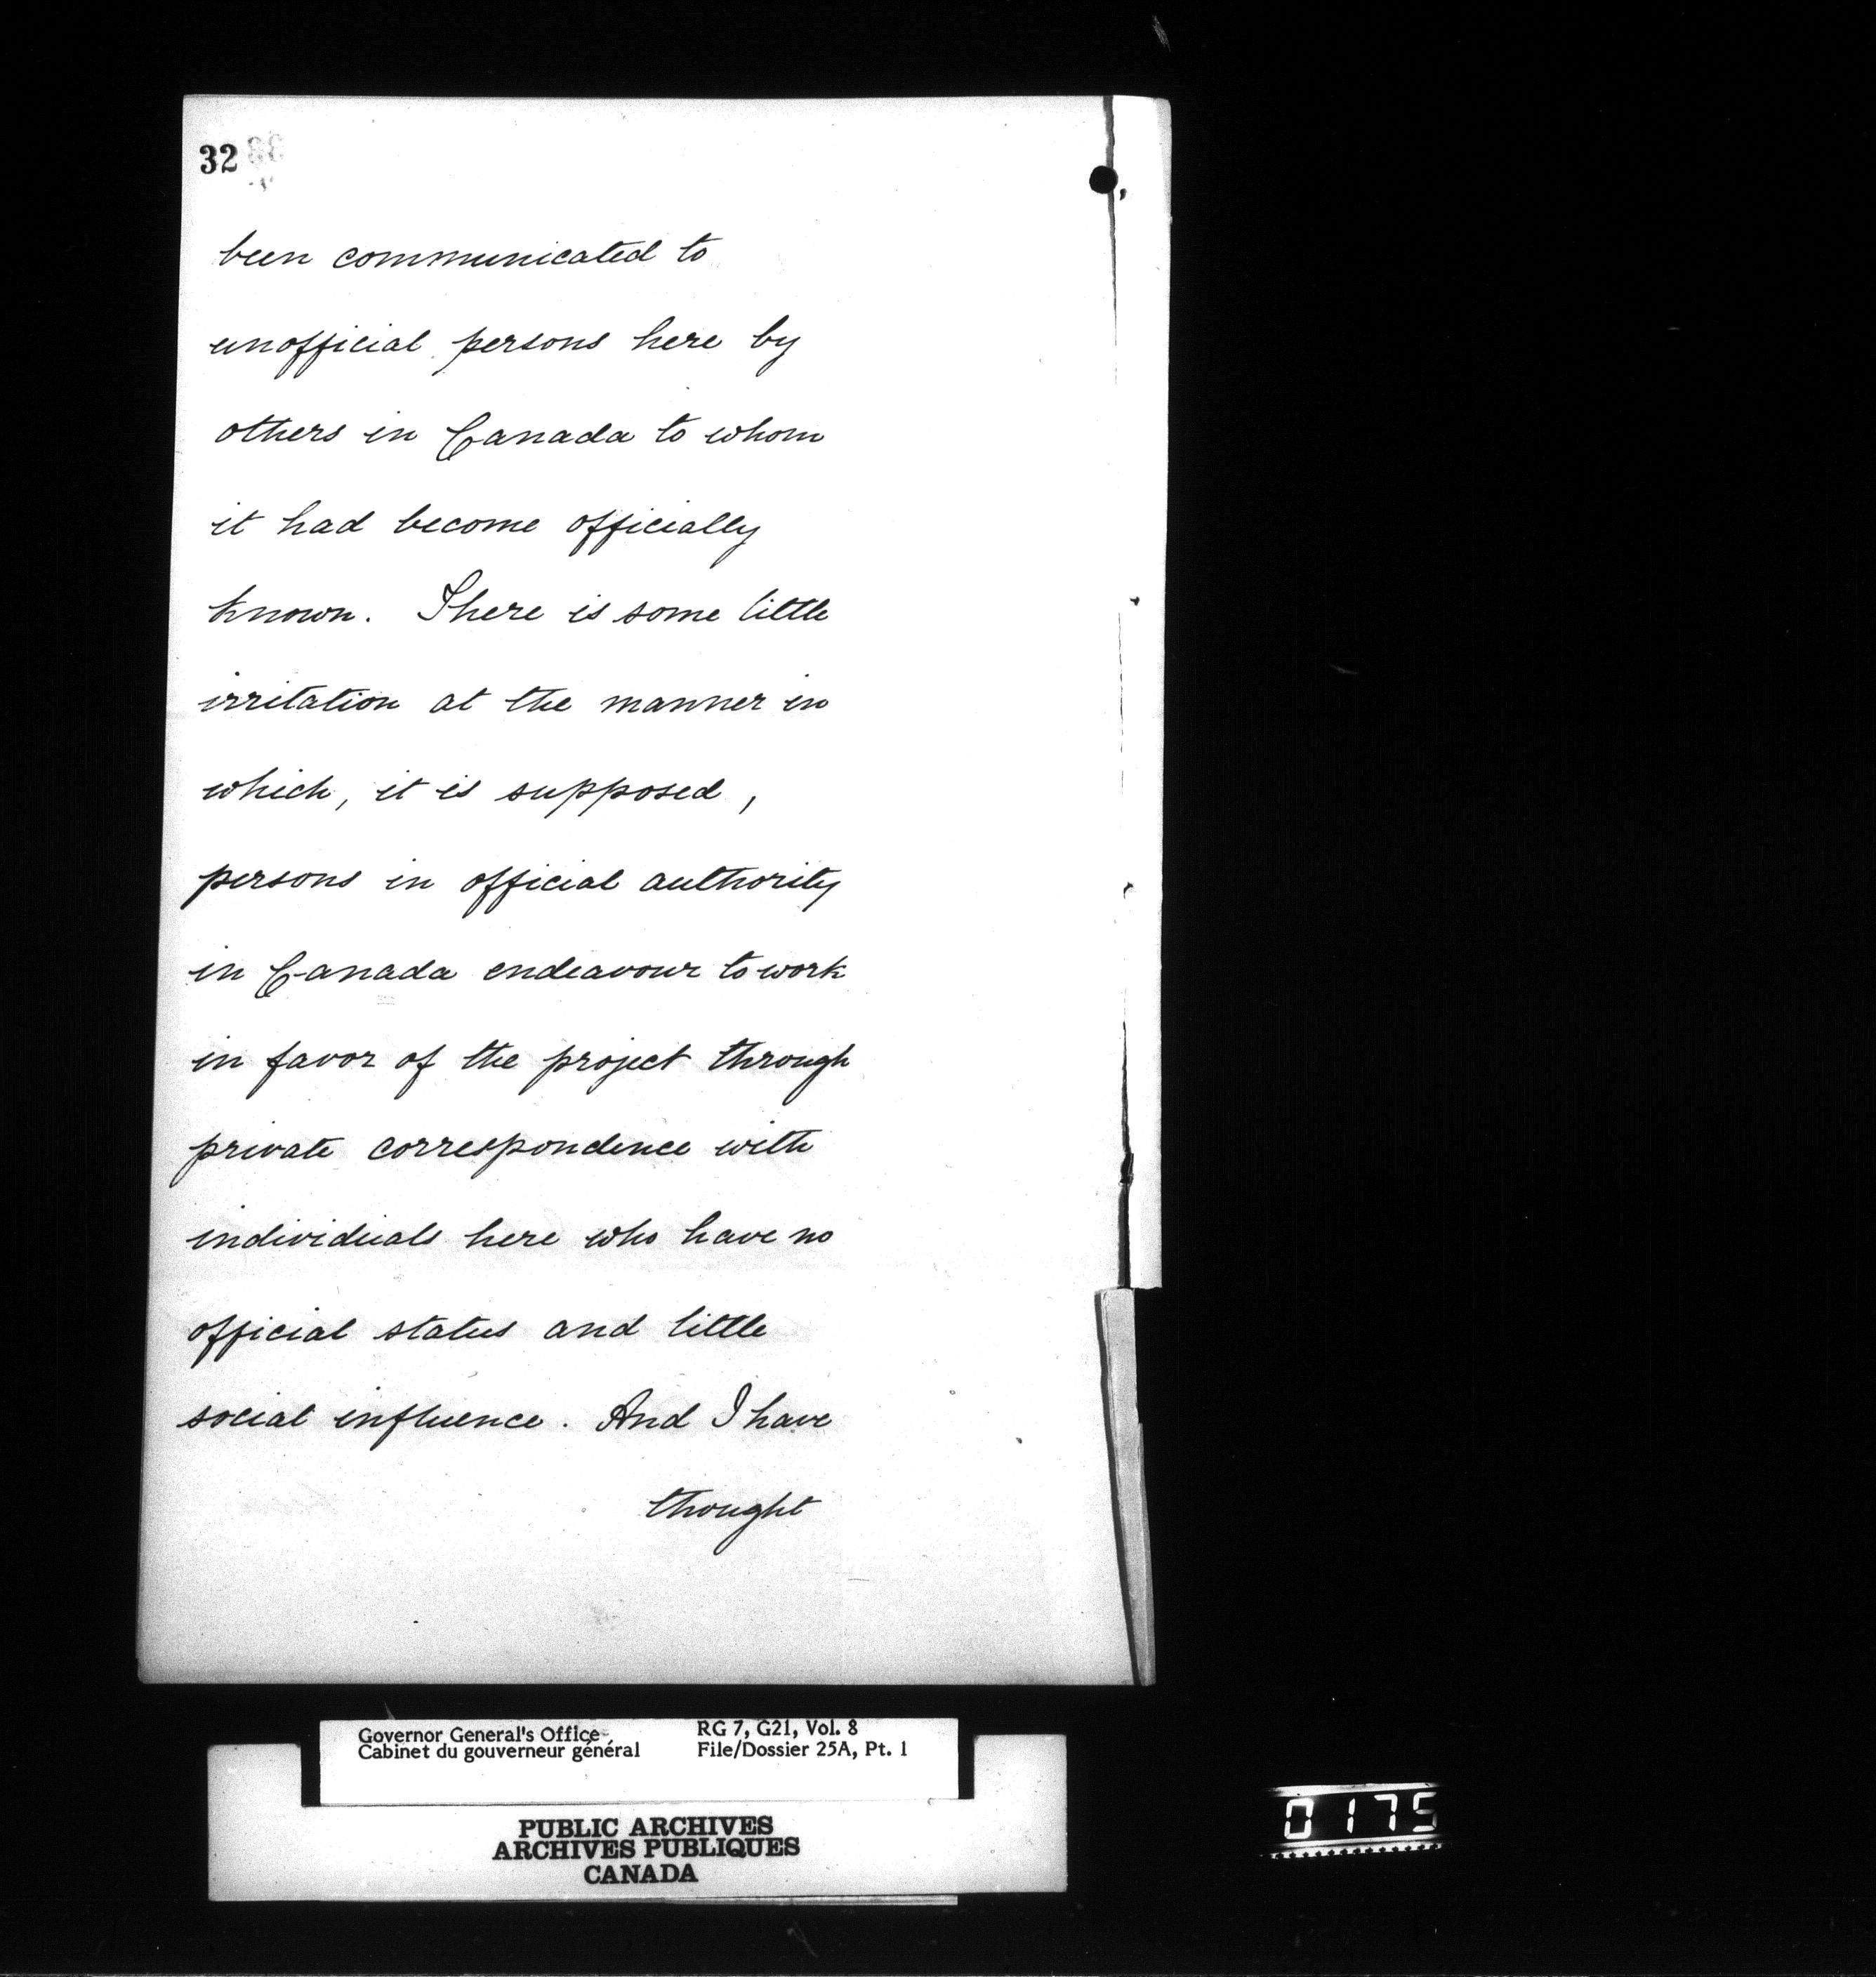 32
been communicated to
unofficial persons here by
others in Canada to whom
it had become officially
known. There is some little
irritation at the manner in
which, it is supposed,
persons in official authority
in Canada endeavour to work
in favor of the project through
private correspondence with
individuals here who have no
official status and little
social influence. And I have
thought
Governor General's Office
Cabinet du gouverneur général
RG 7, G21, Vol. 8
File/Dossier 25A, Pt. 1
PUBLIC ARCHIVES
ARCHIVES PUBLIQUES
CANADA
0175